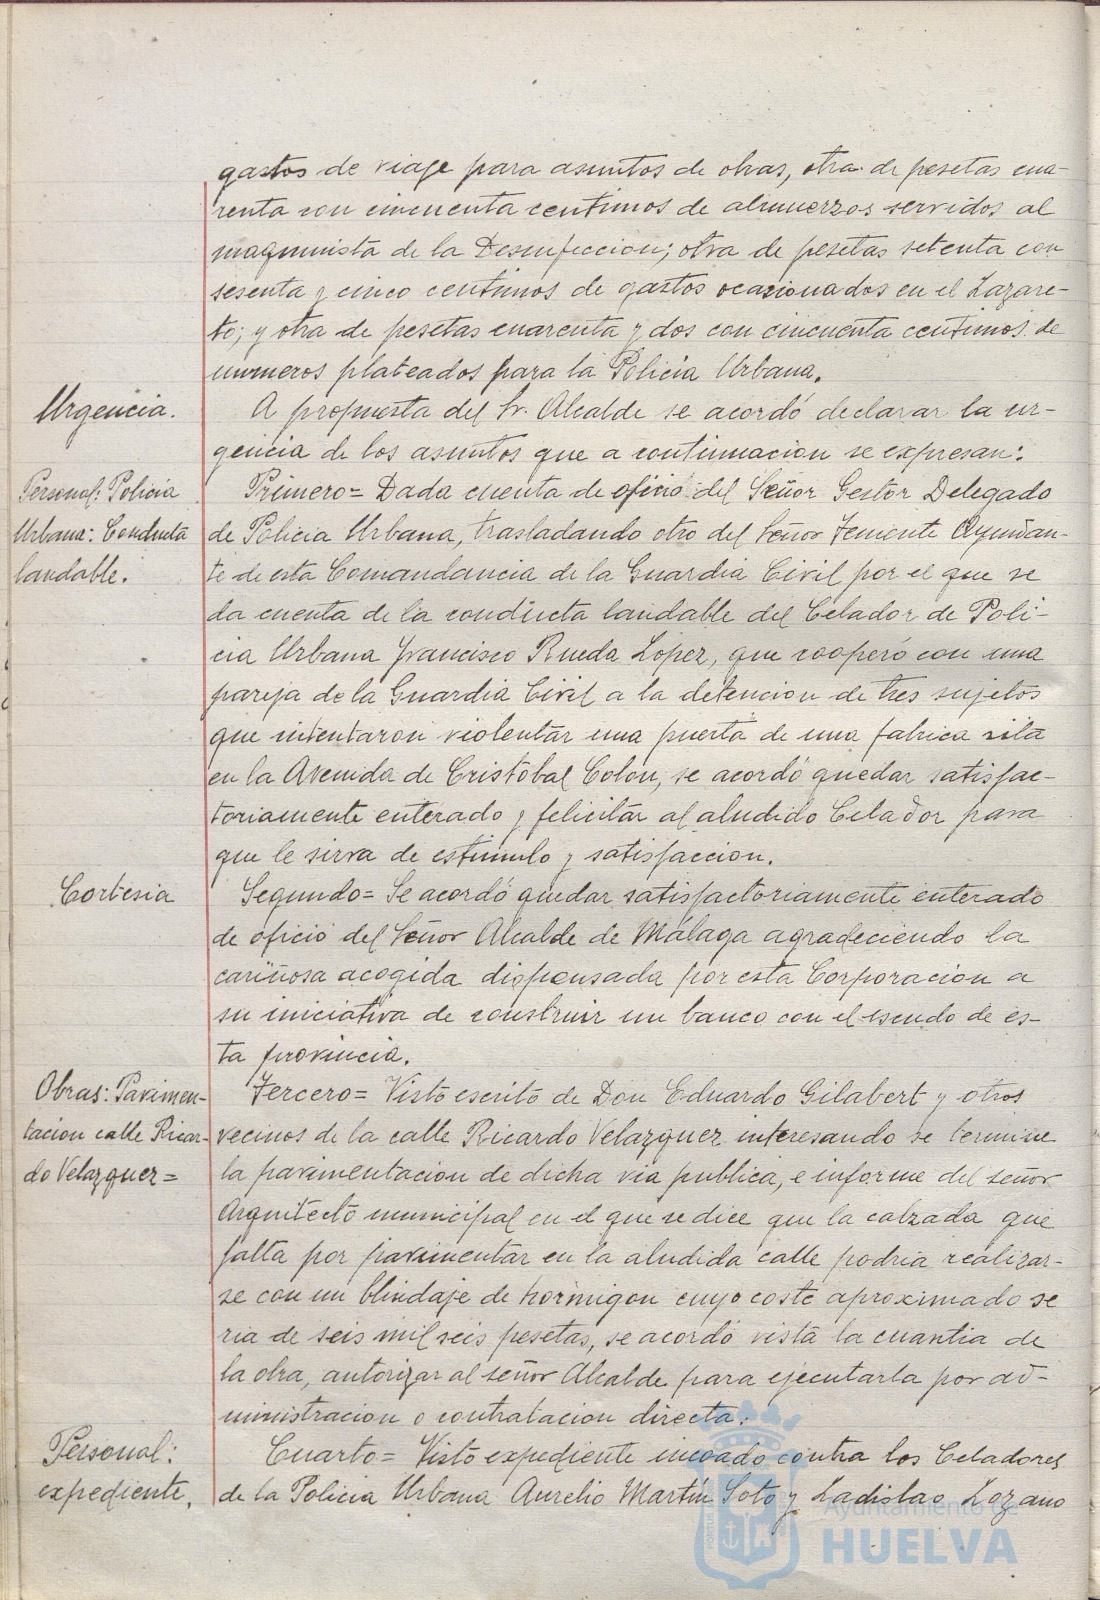 gastos de viage para asuntos de obras, otra de pesetas cua-
renta con cincuenta centimos de almuerzos servidos al
maquinista de la Desinfeccion; otra de pesetas setenta con
sesenta y cinco centimos de gastos ocasionados en el Lazare-
to; y otra de pesetas cuarenta y dos con cincuenta centimos de
numeros plateados para la Policia Urbana.
Urgencia.
A propuesta del Sr. Alcalde se acordó declarar la ur-
gencia de los asuntos que a continuacion se expresan:
Personal: Policia
Urbana: Conducta
laudable.
Primero= Dada cuenta de oficio del Señor Gestor Delegado
de Policia Urbana, trasladando otro del Señor Teniente Ayudan-
te de esta Comandancia de la Guardia Civil por el que se
da cuenta de la conducta laudable del Celador de Poli-
cia Urbana Francisco Rueda Lopez, que cooperó con una
pareja de la Guardia Civil a la detencion de tres sujetos
que intentaron violentar una puerta de una fabrica sita
en la Avenida de Cristobal Colon, se acordó quedar satisfac-
toriamente enterado y felicitar al aludido Celador para
que le sirva de estimulo y satisfaccion.
Cortesia
Segundo= Se acordó quedar satisfactoriamente enterado
de oficio del Señor Alcalde de Málaga agradeciendo la
cariñosa acogida dispensada por esta Corporacion a
su iniciativa de construir un banco con el escudo de es-
ta provincia.
Obras: Pavimen-
tacion calle Ricar-
do Velazquez=
Tercero= Visto escrito de Don Eduardo Gilabert y otros
vecinos de la calle Ricardo Velazquez interesando se termine
la pavimentacion de dicha via publica, e informe del señor
Arquitecto municipal en el que se dice que la calzada que
falta por pavimentar en la aludida calle podria realizar-
se con un blindaje de hormigon cuyo coste aproximado se
ria de seis mil seis pesetas, se acordó vista la cuantia de
la obra, autorizar al señor Alcalde para ejecutarla por ad-
ministracion o contratacion directa.
Personal:
expediente.
Cuarto= Visto expediente incoado contra los Celadores
de la Policia Urbana Aurelio Martín Soto y Ladislao Lozano
Ayuntamiento de
HUELVA